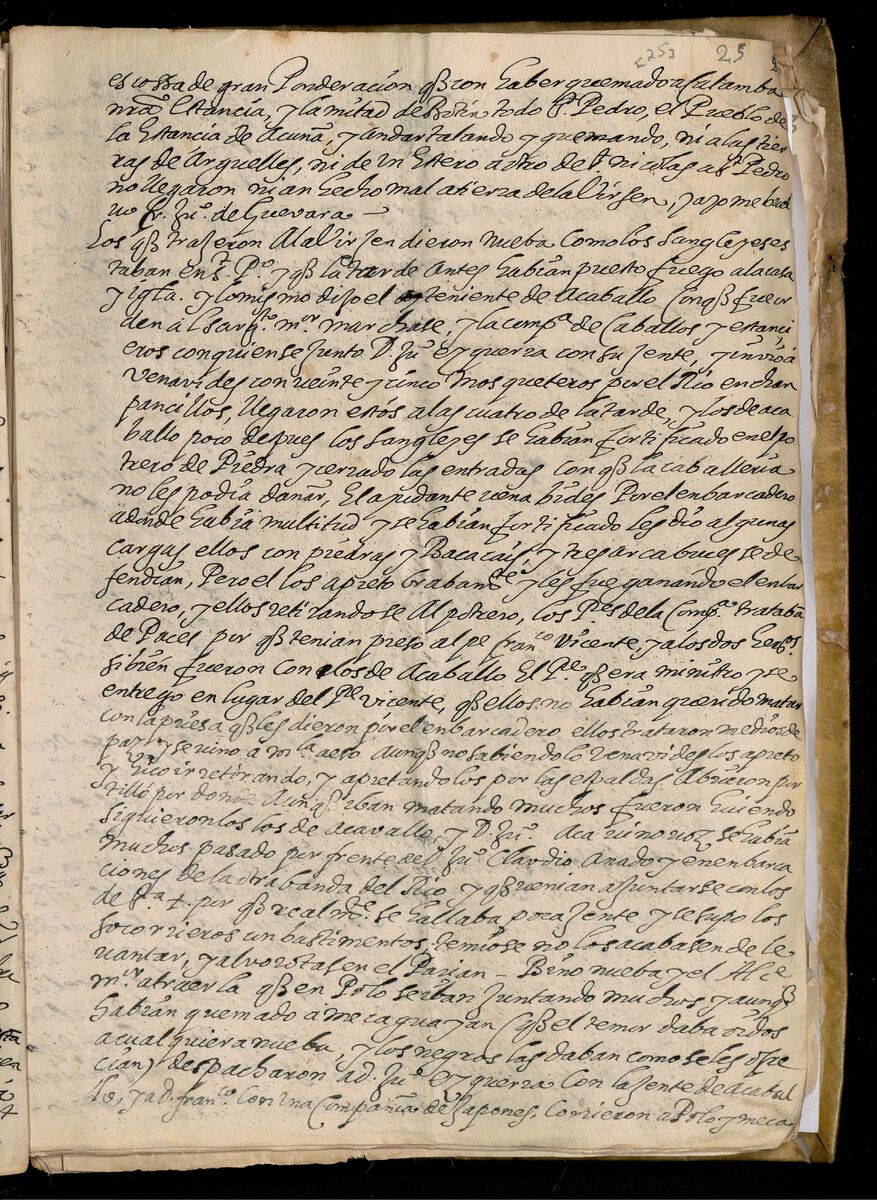 25
es cossa de gran Ponderacion q̃ con haber quemado a Calamba
nr̃a Estancia, y la mitad de Binñ todo S. Pedro, el Pueblo de
la Estancia de Acuña, y andar talando y quemando, ni a las tier
ras de Arguelles, ni de un Estero a otro de S. nicolas a S. Pedro
no llegaron ni an hecho mal a tierra de la Virgen,
fr. Juº. de Guevara —
Los q̃ trajeron A la Virjen dieron nueba como los sangleyes es
taban en S. Pº y q̃ la tarde antes habian puesto fuego a la casa
y iglª. y lo mismo dijo el teniente de acaballo Con q̃ fue or
den al sargto. mor. marchase, y la compª. de Caballos y estanci
eros con quien se junto D. Juº ezquerra con su jente, y invio a
venavides con veinte y cinco mosqueteros por el Rio en cham
pancillos, llegaron estos a las cuatro de la tarde, y los de aca
ballo poco depues los sangleyes se habian fortificado en el po
trero de Piedra y cerzado las entradas con q̃ la caballeria
no les podia dañar, El ajudante venabides Por el enbarcadero
adonde habia multitud y se habian fortificado les dio algunas
cargas ellos con piedras y Bacacais, y tres arcabuces se de
fendian, Pero el los apreto brabamte. y les fue ganando el enbar
cadero, y ellos retirandose Al potrero, los Pes. de la Compª. trataba
de Paces por q̃ tenian preso al pe franco. Vicente, y a los dos hers.
sibien fueron con los de Acaballo El Pe. q̃ era ministro y se
entrego en lugar del Pe Vicente, q̃ ellos no habian querido matar
con la priesa q̃ les dieron por el enbarcadero ellos trataron medios de
paz y se vino a aeso Aunq̃ no sabiendolo venavides los apreto
y hico ir retirando, y apretandolos por las espaldas Abrieron por
tillo por donde Aunq̃ iban matando muchos fueron huiendo
siguieronlos los de acavallo, y D. Juº. Aca vino voz se habia
muchos pasado por frente del Juº. Claudio a nado y en enbarca
ciones de la otra banda del Rio y q̃ venian a juntarse con los
de Sta. +. por q̃ realmte. se hallaba poca jente y se supo los
socorrieros con bastimentos, temiose no los acabasen de le
vantar, y alvorotasen el Parian – Bino nueba y el Alce
mor. a traerla q̃ en Polo se iban juntando muchos y aunq̃
habian quemado a mecaguayan (q̃ el temor daba oidos
a cualquiera nueba, y los negros las daban como se les ofre
cian) despacharon a d. Juº ezquerra con la jente de acabal
lo, y a d. franco. con una Compañia de Japones, corrieron a Polo y meca